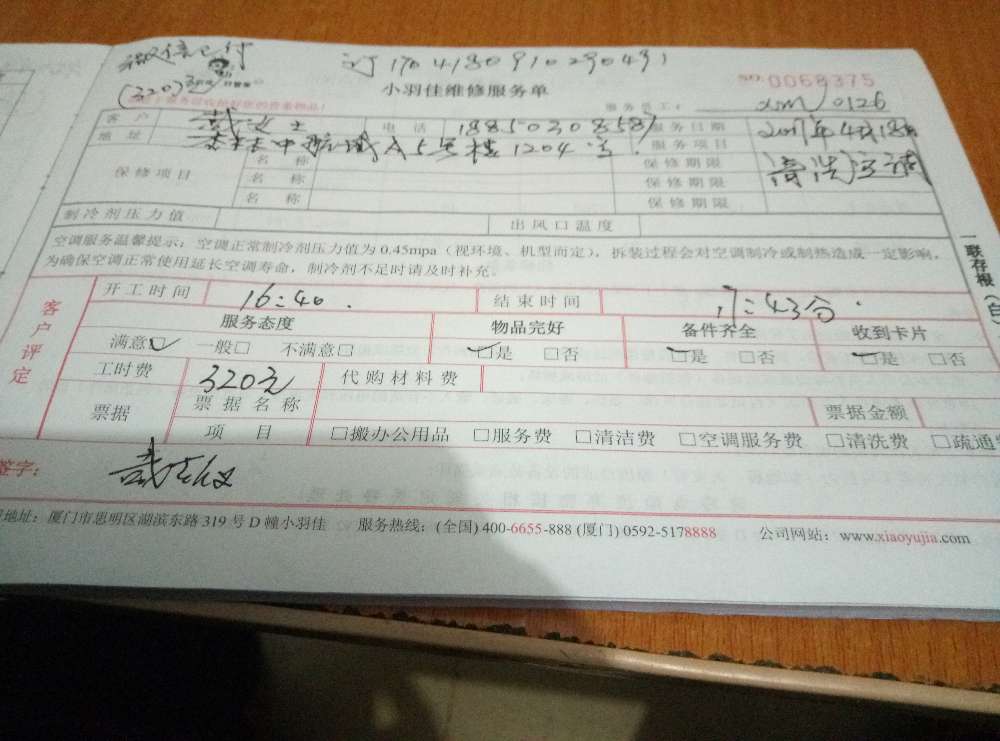 微信已付 订1704180910290431
(320) NO. 0068375
小羽佳维修服务单
服务员工: xm 0126
客户 戴女士 电话 18850308587 服务日期 2017年4月18日
地址 5号楼1204室 服务项目 清洗空调
保修项目 名称 保修期限
名称 保修期限
名称 保修期限
制冷剂压力值 出风口温度
空调服务温馨提示:空调正常制冷剂压力值为0.45mpa(视环境、机型而定),拆装过程会对空调制冷或制热造成一定影响,
为确保空调正常使用延长空调寿命,制冷剂不足时请及时补充。
一联存根(白
客户评定
开工时间 16:40. 结束时间 17:43分.
服务态度 物品完好 备件齐全 收到卡片
满意□ 一般□ 不满意□ □是 □否 □是 □否 □是 □否
工时费 320元 代购材料费
票据 票据名称 票据金额
项目 □搬办公用品 □服务费 □清洁费 □空调服务费 □清洗费 □疏通
签字:
地址:厦门市思明区湖滨东路319号D幢小羽佳 服务热线:(全国)400-6655-888 (厦门)0592-5178888 公司网站:www.xiaoyujia.com